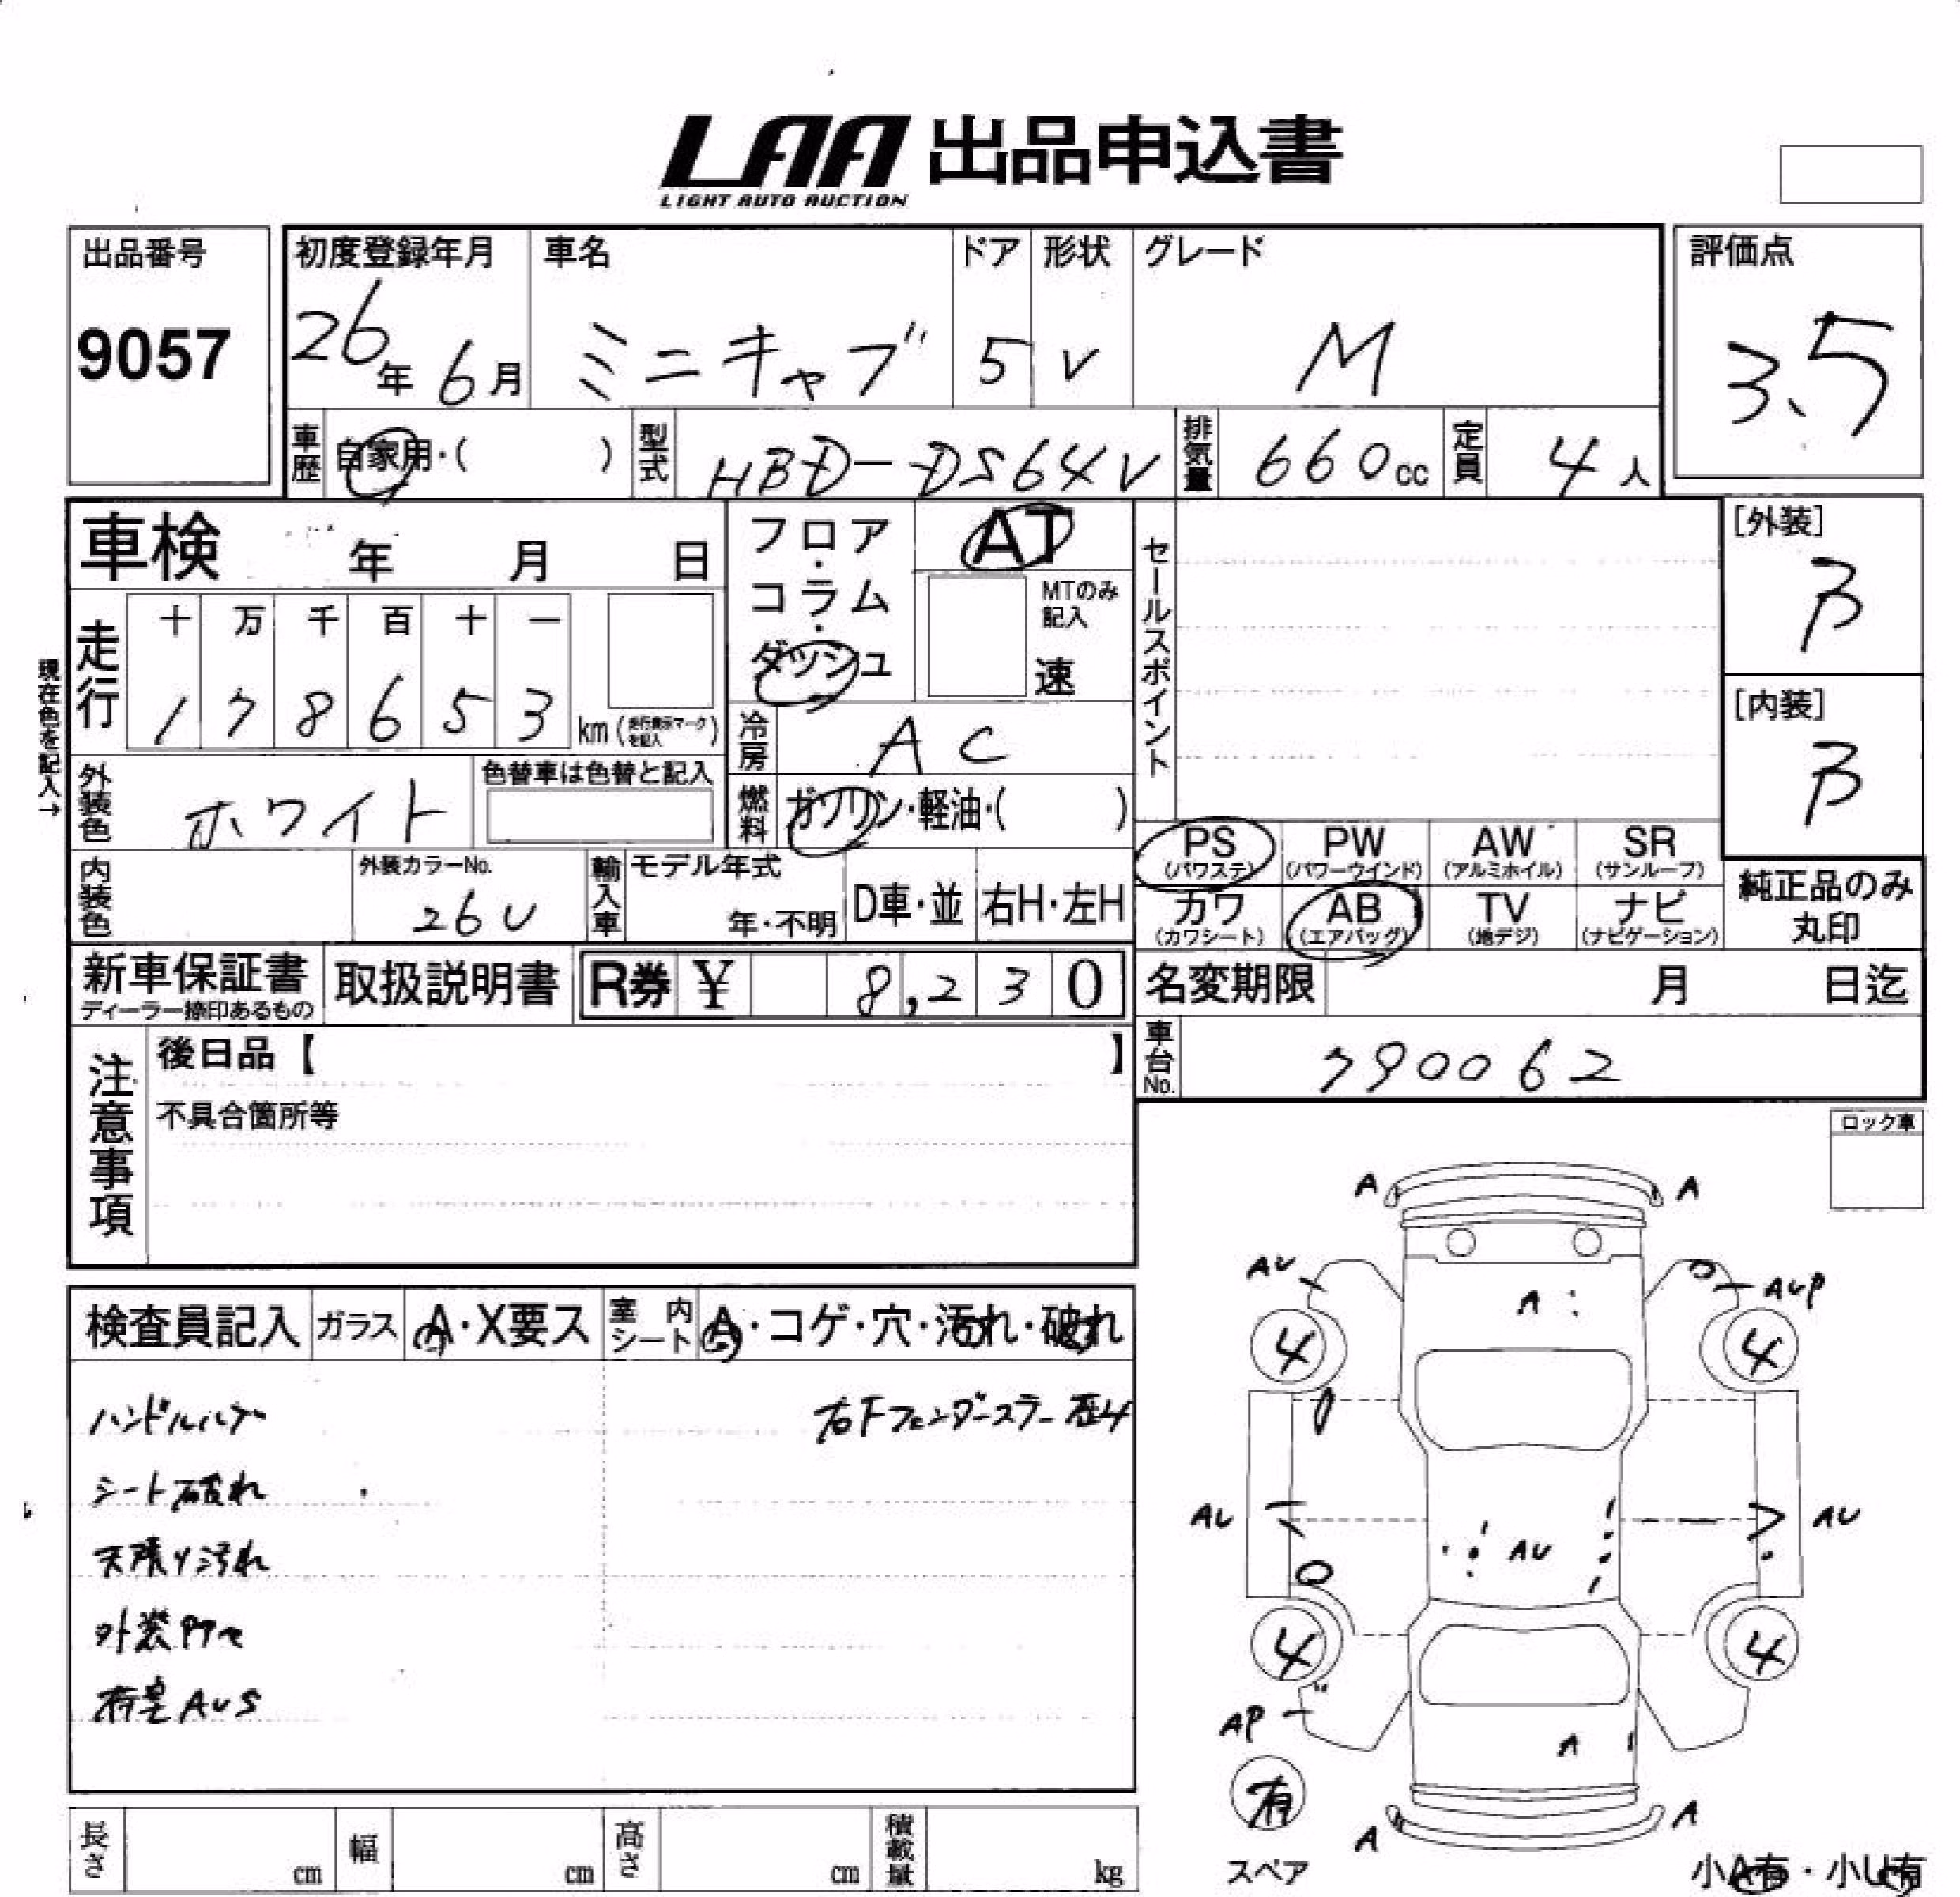 LAA 出品申込書
LIGHT AUTO AUCTION
出品番号
9057
初度登録年月
26年 6月
車名
ミニキャブ
ドア
5
形状
V
グレード
M
評価点
3.5
車歴 自家用・( )
型式 HBD-DS64V
排気量 660cc
定員 4人
車検 年 月 日
フロア・コラム・ダッシュ
AT
MTのみ記入
速
セールスポイント
[外装]
B
[内装]
B
現在色を記入→
走行
十 万 千 百 十 一
1 7 8 6 5 3 km (走行表示マークを記入)
冷房 AC
外装色 ホワイト
色替車は色替と記入
燃料 ガソリン・軽油・( )
PS (パワステ)
PW (パワーウインド)
AW (アルミホイル)
SR (サンルーフ)
カワ (カワシート)
AB (エアバッグ)
TV (地デジ)
ナビ (ナビゲーション)
純正品のみ丸印
内装色
外装カラーNo.
26U
輸入車
モデル年式
年・不明
D車・並
右H・左H
新車保証書
ディーラー捺印あるもの
取扱説明書
R券 ¥ 8,230
名変期限 月 日迄
車台No. 790062
注意事項
後日品【 】
不具合箇所等
ロック車
検査員記入
ガラス A・X要ス
室内シート A・コゲ・穴・汚れ・破れ
ハンドルハゲ
シート破れ
天張り汚れ
荷室AUS
A
A
AU
AUP
A
4
4
AU
AU
AU
4
4
AP
A
有
A
A
スペア
小A有・小U有
長さ cm
幅 cm
高さ cm
積載量 kg